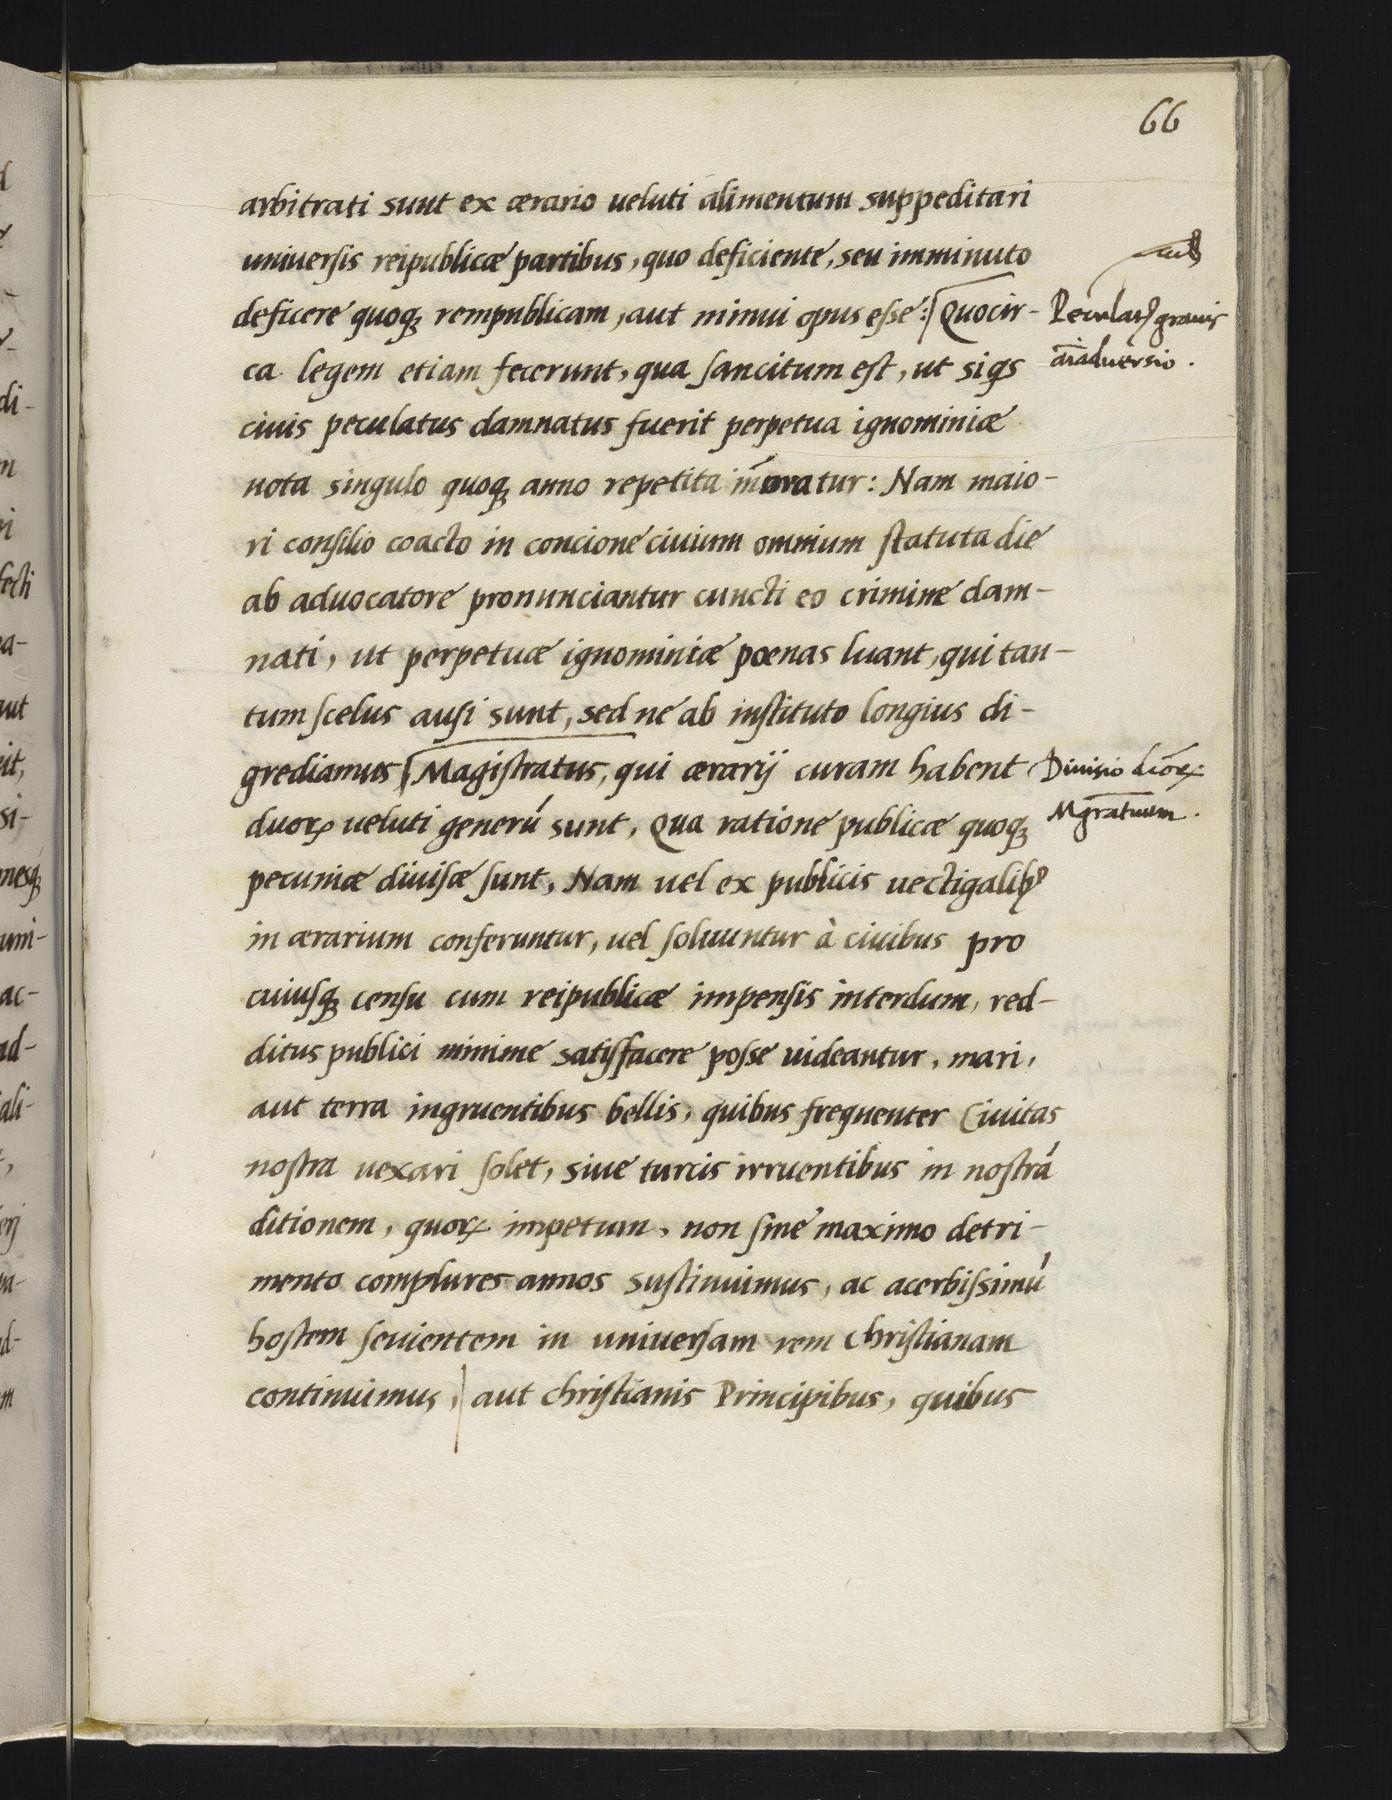 66
arbitrati sunt ex ærario ueluti alimentum suppeditari
uniuersis reipublicæ partibus, quo deficiente, seu imminuto
deficere quoq; rempublicam, aut minui opus esse: Quocir-
Peculatꝰ grauis
aīaduersio.
ca legem etiam fecerunt, qua sancitum est, ut siqs
ciuis peculatus damnatus fuerit perpetua ignominiæ
nota singulo quoq; anno repetita
Nam maio-
ri consilio coacto in concione ciuium omnium statuta die
ab aduocatore pronunciantur cuncti eo crimine dam-
nati, ut perpetuæ ignominiæ pœnas luant, qui tan-
tum scelus ausi sunt, sed ne ab instituto longius di-
grediamus Magistratus, qui ærarij curam habent
Diuisio
Mgratuum.
duoꝝ ueluti generū sunt, Qua ratione publicæ quoq;
pecuniæ diuisæ sunt, Nam uel ex publicis uectigalibꝰ
in ærarium conferuntur, uel soluuntur à ciuibus pro
cuiusq; censu cum reipublicæ impensis interdum, red-
ditus publici minime satisfacere posse uideantur, mari,
aut terra ingruentibus bellis, quibus frequenter Ciuitas
nostra uexari solet, siue turcis irruentibus in nostrā
ditionem, quoꝝ impetum, non sine maximo detri-
mento complures annos sustinuimus, ac acerbissimū
hostem seuientem in uniuersam rem christianam
continuimus, aut christianis Principibus, quibus